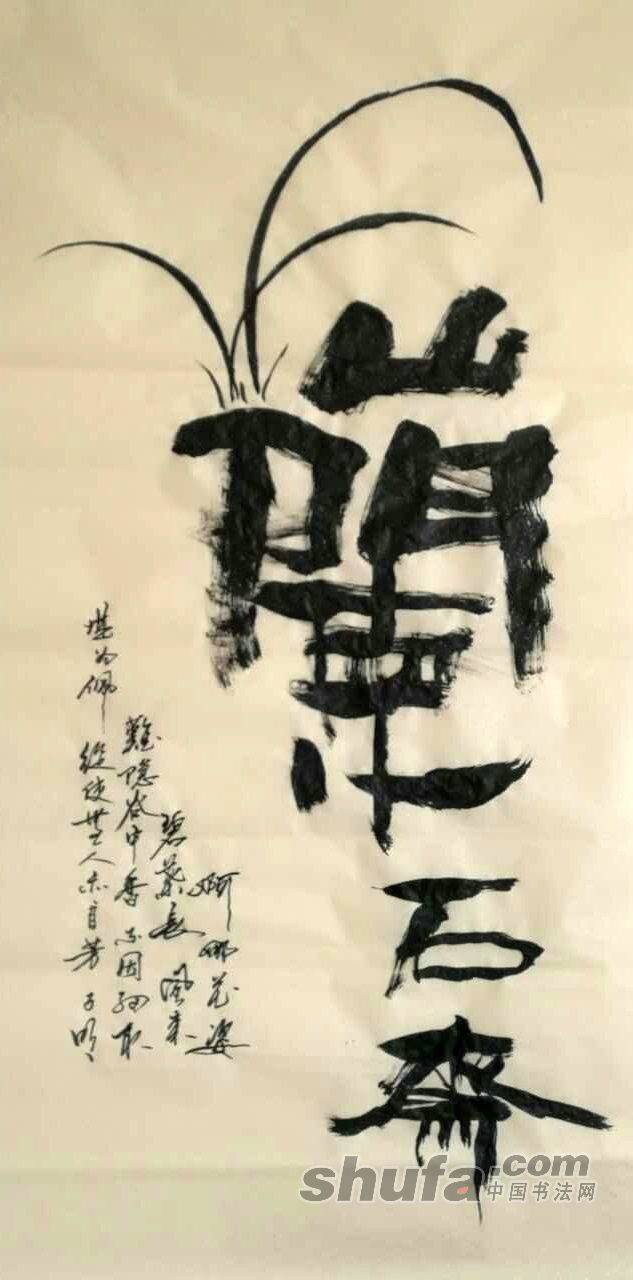 蘭石齋
婀娜花姿
碧葉長 風來
難隱谷中香 不因紉取
堪为佩 縱使無人亦自芳 子明
shufa.com
中国书法网